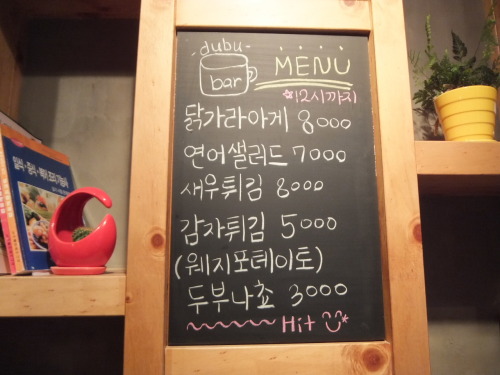 dubu
bar
MENU
*12시까지
닭가라아게 8000
연어샐러드 7000
새우튀김 8000
감자튀김 5000
(웨지포테이토)
두부나쵸 3000
Hit